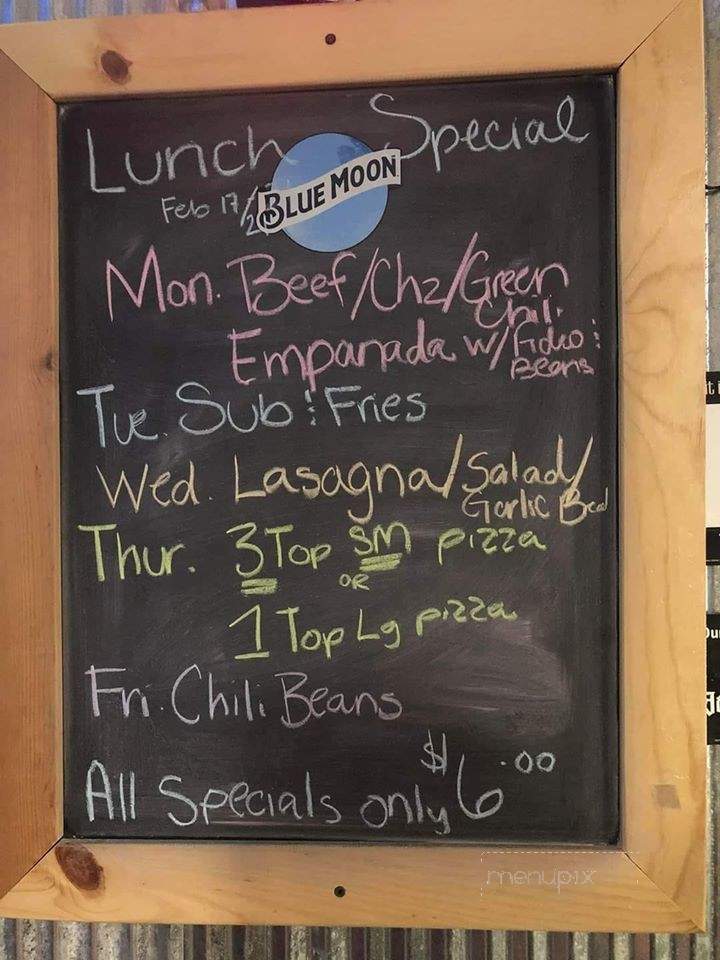 Lunch Special
Feb 17/2
BLUE MOON
Mon. Beef/Chz/Green
Chili
Empanada w/
Beans
Tue. Sub & Fries
Wed. Lasagna/Salad/
Garlic
Thur. 3 Top SM pizza
OR
1 Top Lg pizza
Fri. Chili Beans
All Specials only $6.00
menupix